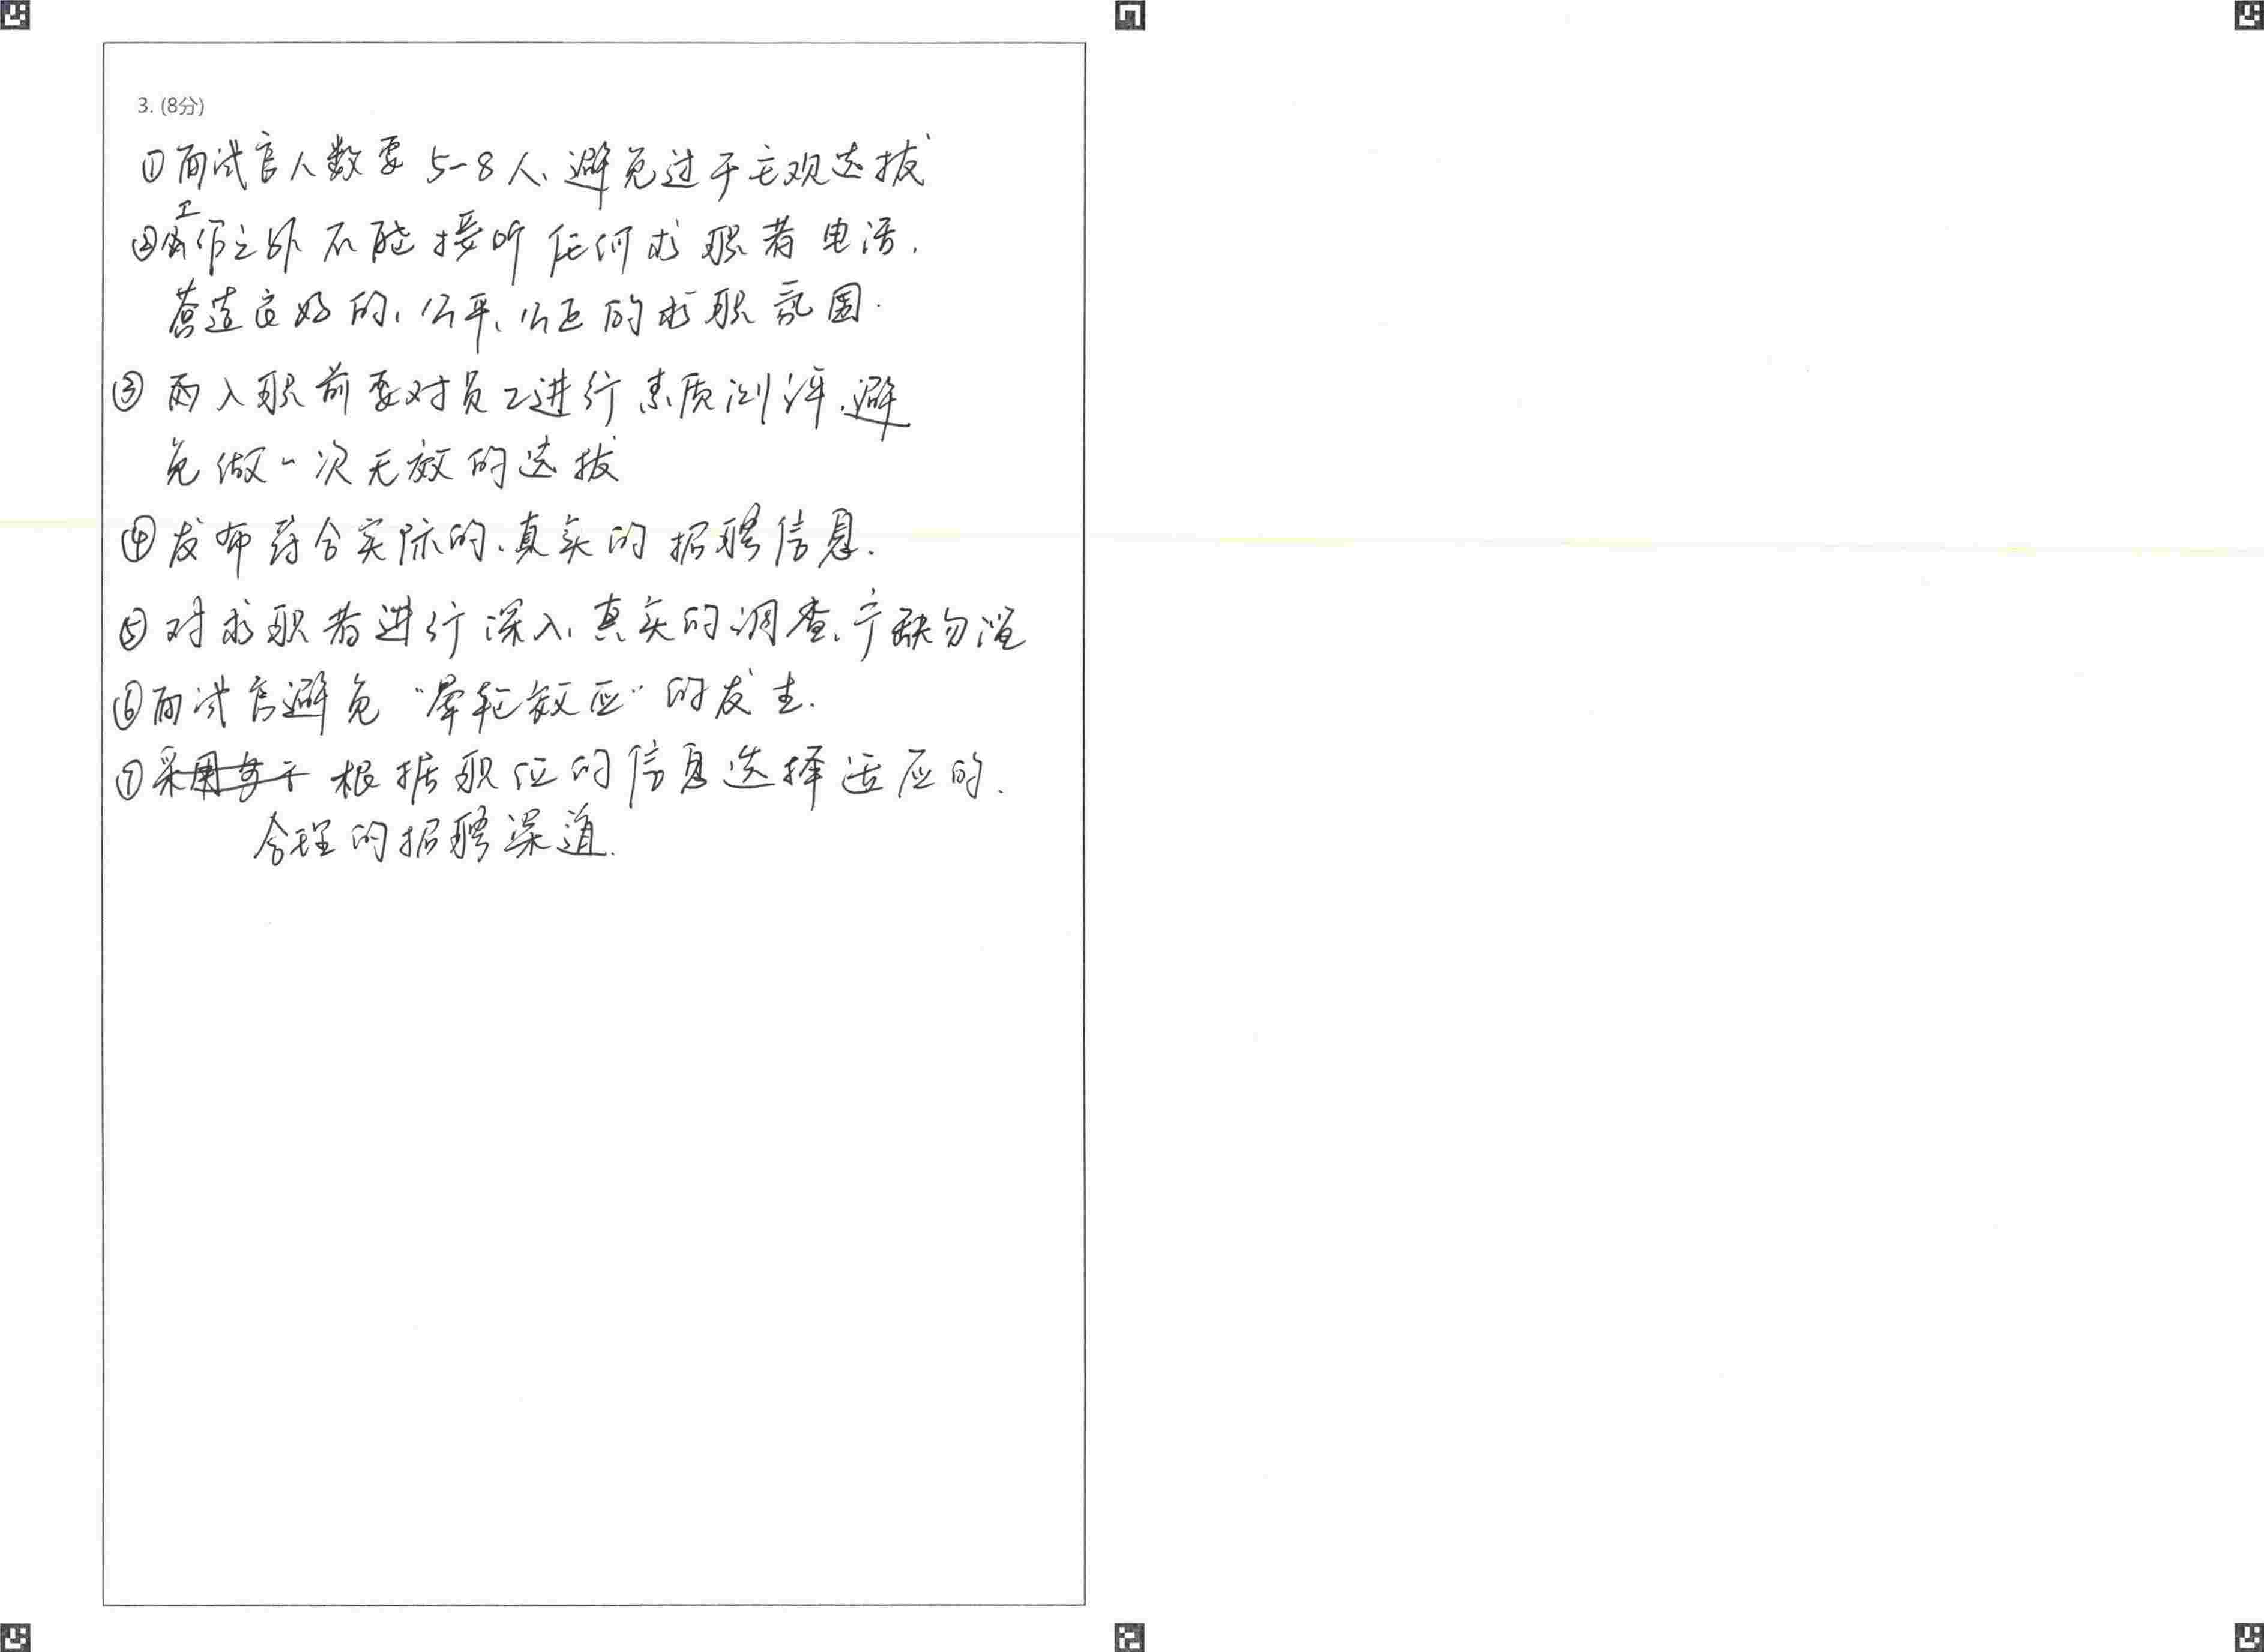 3. (8分)
①面试官人数要5-8人、避免过于主观选拔
②工作之外不能接听任何求职者电话,
营造良好的、公平、公正的求职氛围.
③ 入职前要对员工进行素质测评,避
免做一次无效的选拔
④发布符合实际的、真实的招聘信息.
⑤对求职者进行深入、真实的调查,宁缺勿滥
⑥面试官避免“晕轮效应”的发生.
⑦根据职位的信息选择适应的、
合理的招聘渠道.